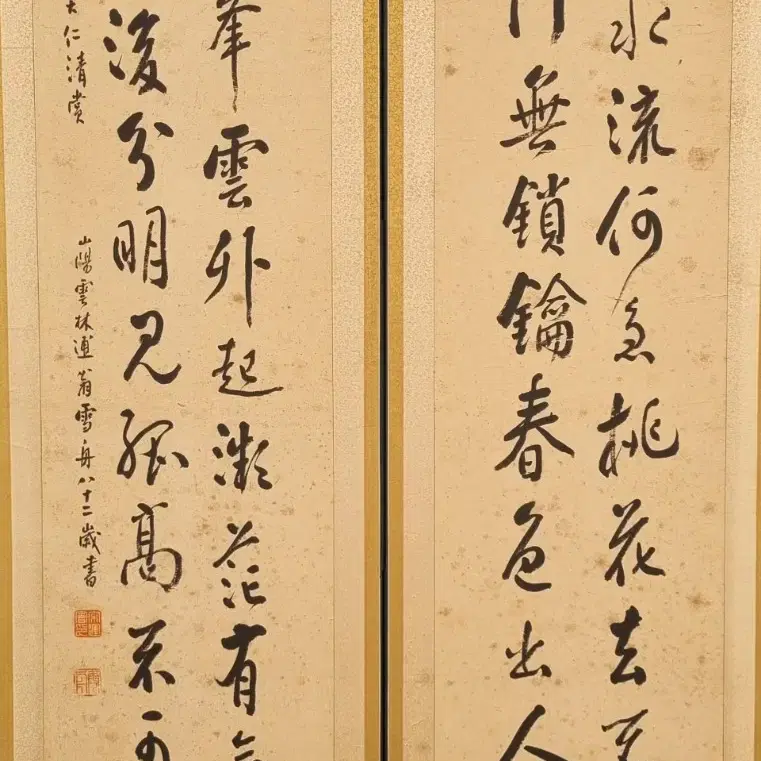 水流何急桃花去
無鎖鑰春色出人
峯雲外起微茫有
後分明見高不可
大仁清賞
山陽雲林逋翁雪舟八十二歳書